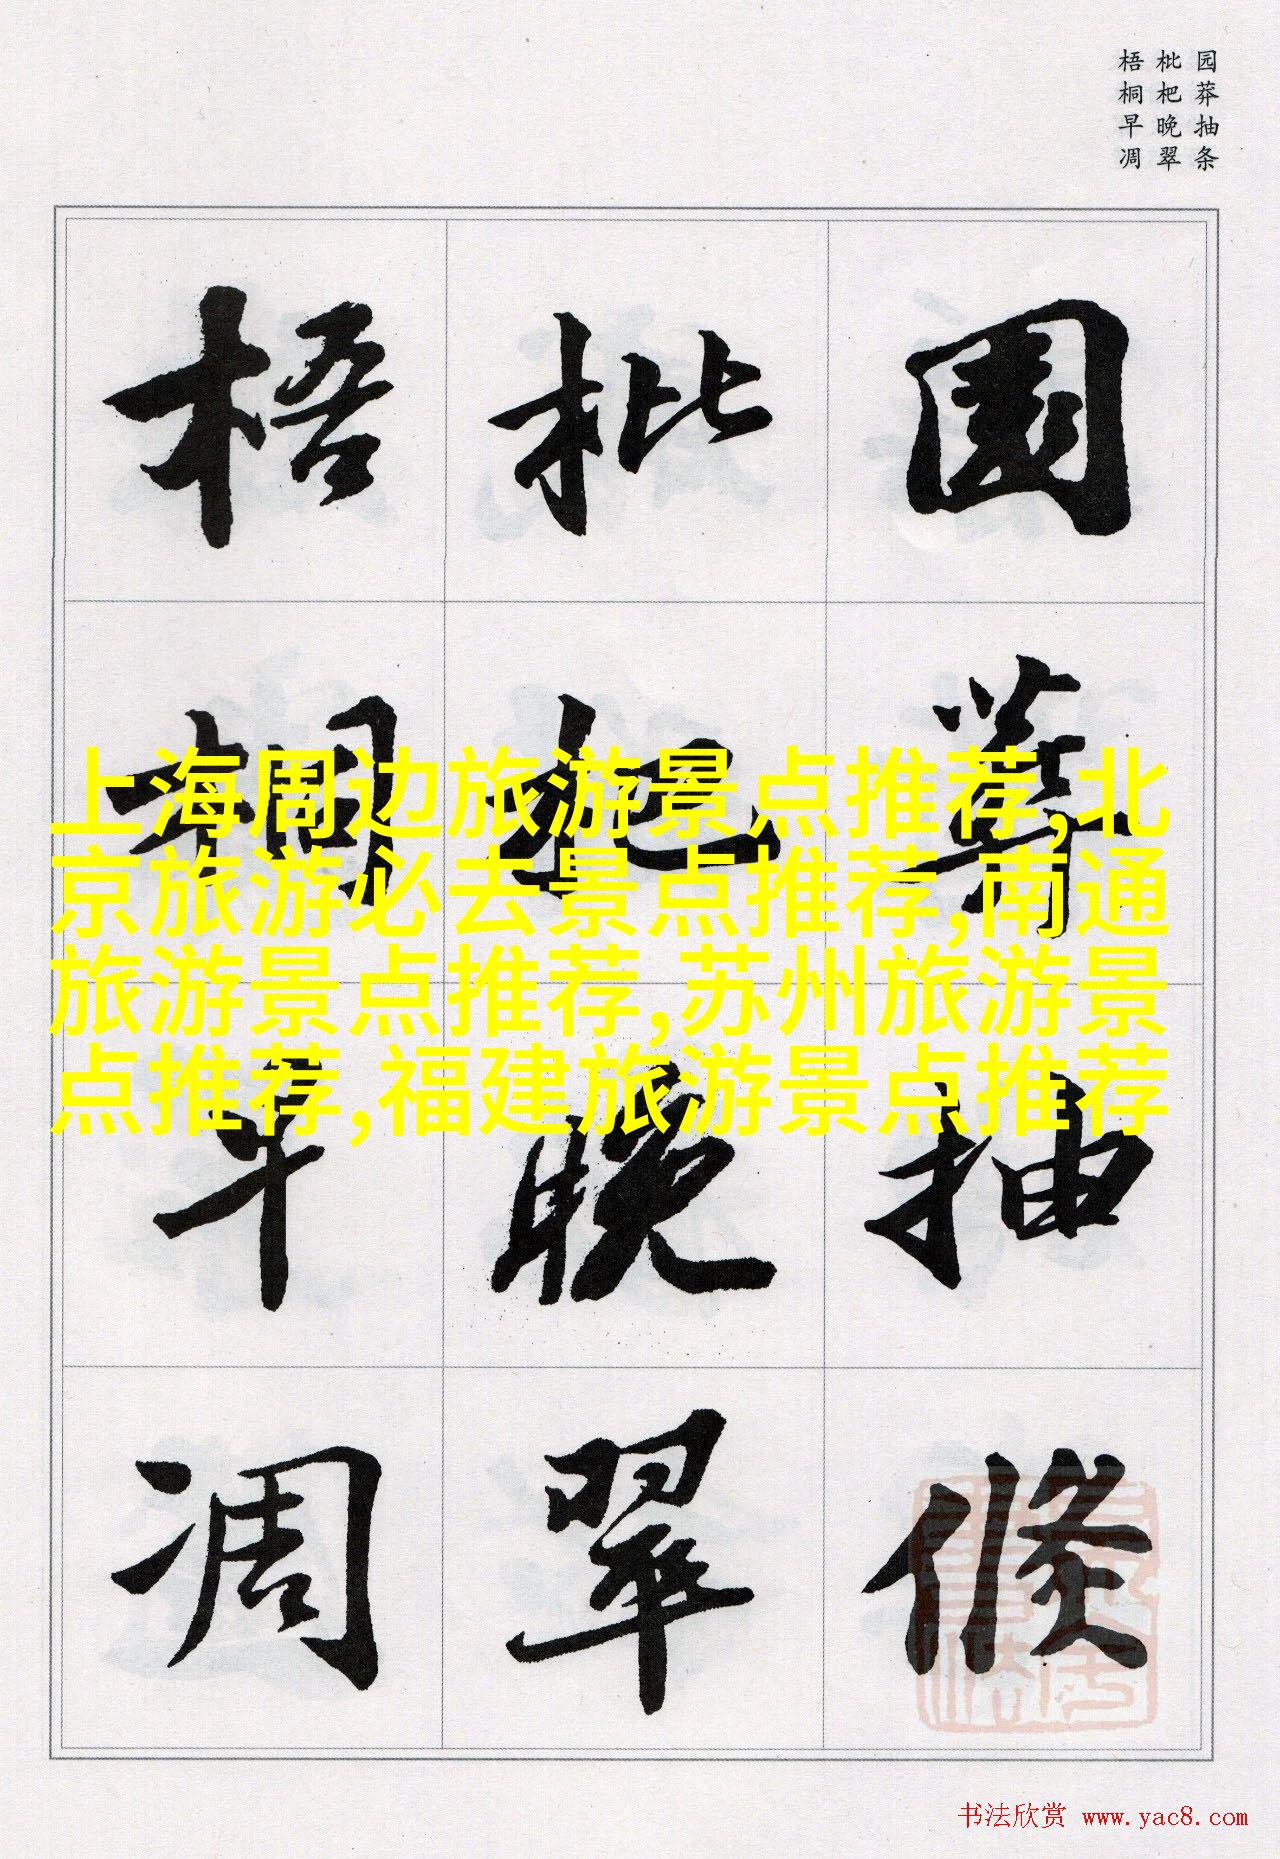 园莽抽条
枇杷晚翠
梧桐早凋
園莽抽條
枇杷晚翠
梧桐早凋
上海周边旅游景点推荐,北
京旅游必去景点推荐,南通
旅游景点推荐,苏州旅游景
点推荐,福建旅游景点推荐
书法欣赏 www.yac8.com